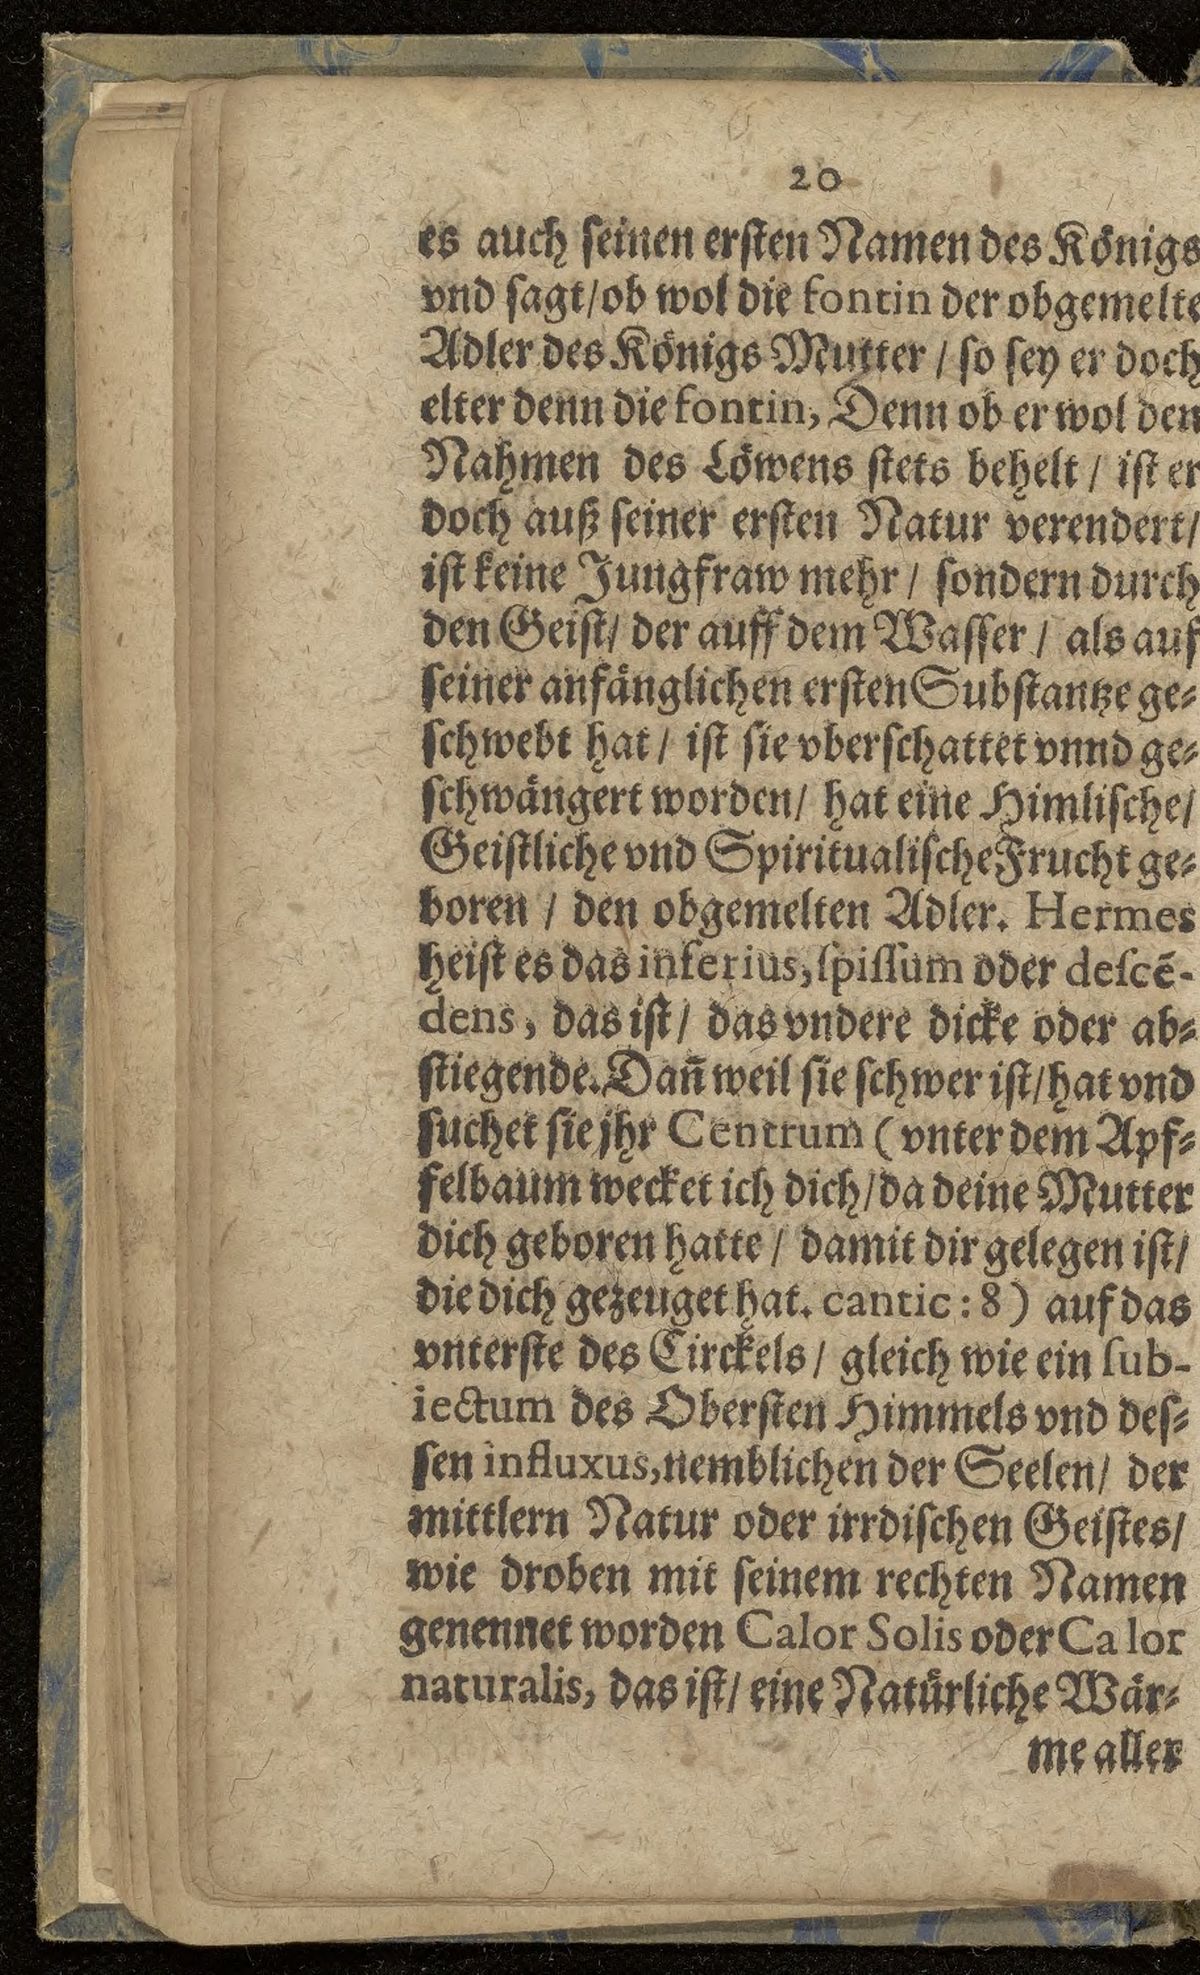 20
es auch ſeinen erſten Namen des Königs
vnd ſagt/ob wol die fontin der obgemelte
Adler des Königs Mutter / ſo ſey er doch
elter denn die fontin, Denn ob er wol den
Nahmen des Löwens ſtets behelt / iſt er
doch auß ſeiner erſten Natur verendert/
iſt keine Jungfraw mehr / ſondern durch
den Geiſt/ der auff dem Waſſer / als auf
ſeiner anfänglichen erſten Subſtantze ge⸗
ſchwebt hat / iſt ſie vberſchattet vnnd ge⸗
ſchwängert worden/ hat eine Himliſche/
Geiſtliche vnd Spiritualiſche Frucht ge⸗
boren / den obgemelten Adler. Hermes
heiſt es das inferius, ſpiſſum oder deſcē-
dens, das iſt/ das vndere dicke oder ab⸗
ſtiegende. Dañ weil ſie ſchwer iſt/hat vnd
ſuchet ſie jhr Centrum (vnter dem Apf⸗
felbaum wecket ich dich/da deine Mutter
dich geboren hatte / damit dir gelegen iſt/
die dich gezeuget hat. cantic: 8) auf das
vnterſte des Circkels / gleich wie ein ſub-
iectum des Oberſten Himmels vnd deſ⸗
ſen influxus, nemblichen der Seelen/ der
mittlern Natur oder irrdiſchen Geiſtes/
wie droben mit ſeinem rechten Namen
genennet worden Calor Solis oder Ca lor
naturalis, das iſt/ eine Natürliche Wär⸗
me aller